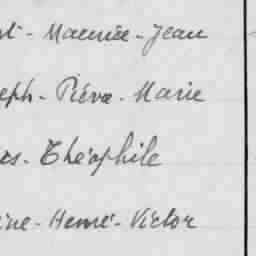 - Maurice - Jean
eph - Pierre - Marie
es - Théophile
ine - Henri - Victor